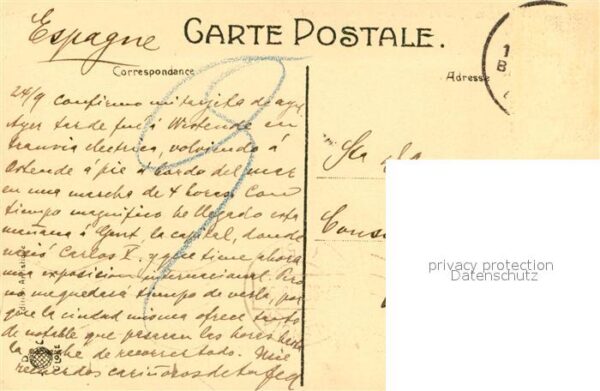 Espagne
CARTE POSTALE.
Correspondance
Adresse
24/9 Confirmo mi tarjeta de ayer
Ayer tarde fui á Westende en
tranvia electrico, volviendo á
Ostende á pie a bordo del mar
en una marcha de 4 horas. Con
tiempo magnifico he llegado esta
mañana á Gant, la capital, donde
nació Carlos V. y que tiene ahora
una exposicion internacional. Pero
no me quedará tiempo de verla, por
que la ciudad misma ofrece tanto
de notable que pasaran las horas hasta
la noche de recorrerlo todo. Mil
recuerdos cariñosos de tu
privacy protection
Datenschutz